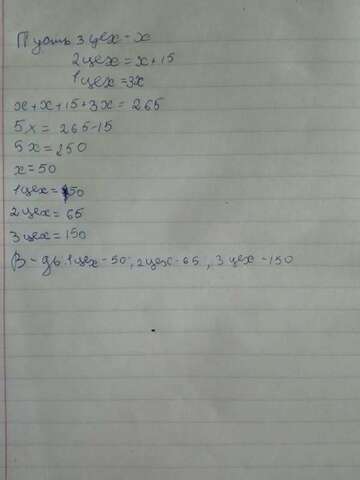 Пусть 3 цех = x
2 цех = x + 15
1 цех = 3x
x + x + 15 + 3x = 265
5x = 265-15
5x = 250
x = 50
1 цех = 50
2 цех = 65
3 цех = 150
В-дь: 1 цех - 50, 2 цех - 65, 3 цех - 150